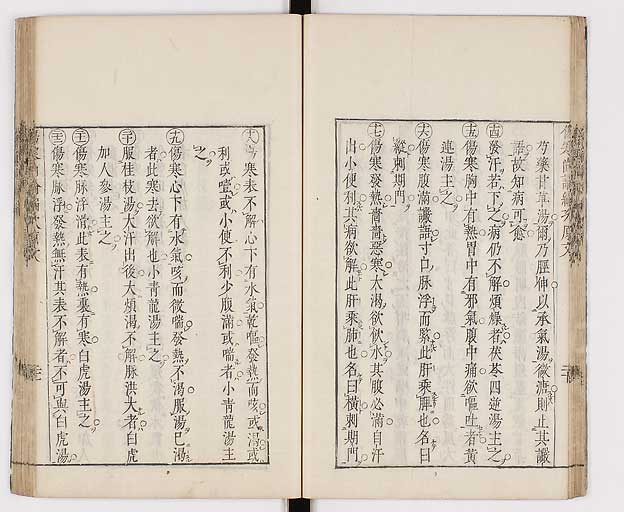 芍藥甘草湯爾乃脛伸以承氣湯微溏則止其讝
語故知病可愈
㊉四發汗若下之病仍不解煩燥者茯苓四逆湯主之
㊉五傷寒胸中有熱胃中有邪氣腹中痛欲嘔吐者黄
連湯主之
㊉六傷寒腹滿讝語寸口脉浮而緊此肝乘脾也名曰
縱刺期門
㊉七傷寒發熱嗇嗇惡寒大渴欲飲水其腹必滿自汗
出小便利其病欲解此肝乘肺也名曰横刺期門
㊉八傷寒表不解心下有水氣乾嘔發熱而咳或渴或
利或噎或小便不利少腹滿或喘者小青龍湯主
之
㊉九傷寒心下有水氣咳而微喘發熱不渴服湯已渴
者此寒去欲解也小青龍湯主之
二十服桂枝湯大汗出後大煩渴不解脉洪大者白虎
加人參湯主之
傷寒脉浮滑此表有熱裏有寒白虎湯主之
傷寒脉浮發熱無汗其表不解者不可與白虎湯